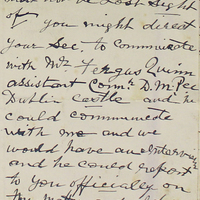 not be lost sight
of you might direct
your Sec. to communicate
with Mr. Fergus Quinn
assistant Commr. D. M. Pol
Dublin Castle and he
could communicate
with me and we
would have an interview
and he could report
to you officially on
the matter